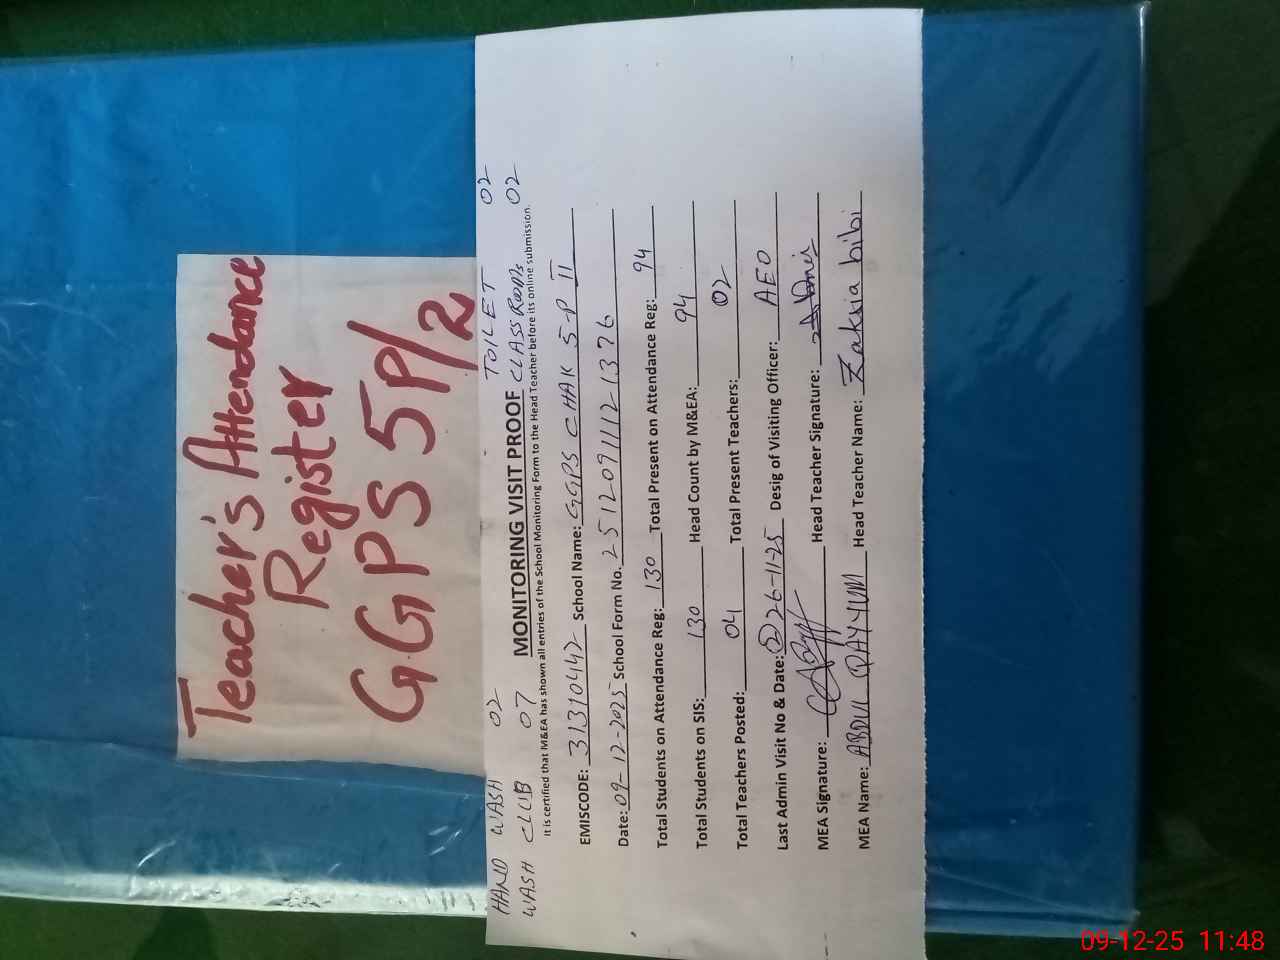 Teacher's Attendance
Register
GGPS 5P/2
HAND WASH 02 TOILET 02
WASH CLUB 07 MONITORING VISIT PROOF CLASS ROOMs 02
It is certified that M&EA has shown all entries of the School Monitoring Form to the Head Teacher before its online submission.
EMISCODE: 31310442 School Name: GGPS CHAK 5-P II
Date: 09-12-2025 School Form No. 2512091112 1376
Total Students on Attendance Reg: 130 Total Present on Attendance Reg: 94
Total Students on SIS: 130 Head Count by M&EA: 94
Total Teachers Posted: 04 Total Present Teachers: 02
Last Admin Visit No & Date: 2 26-11-25 Desig of Visiting Officer: AEO
MEA Signature: Head Teacher Signature:
MEA Name: ABDUL QAYYUM Head Teacher Name: Zakria bibi
09-12-25 11:48